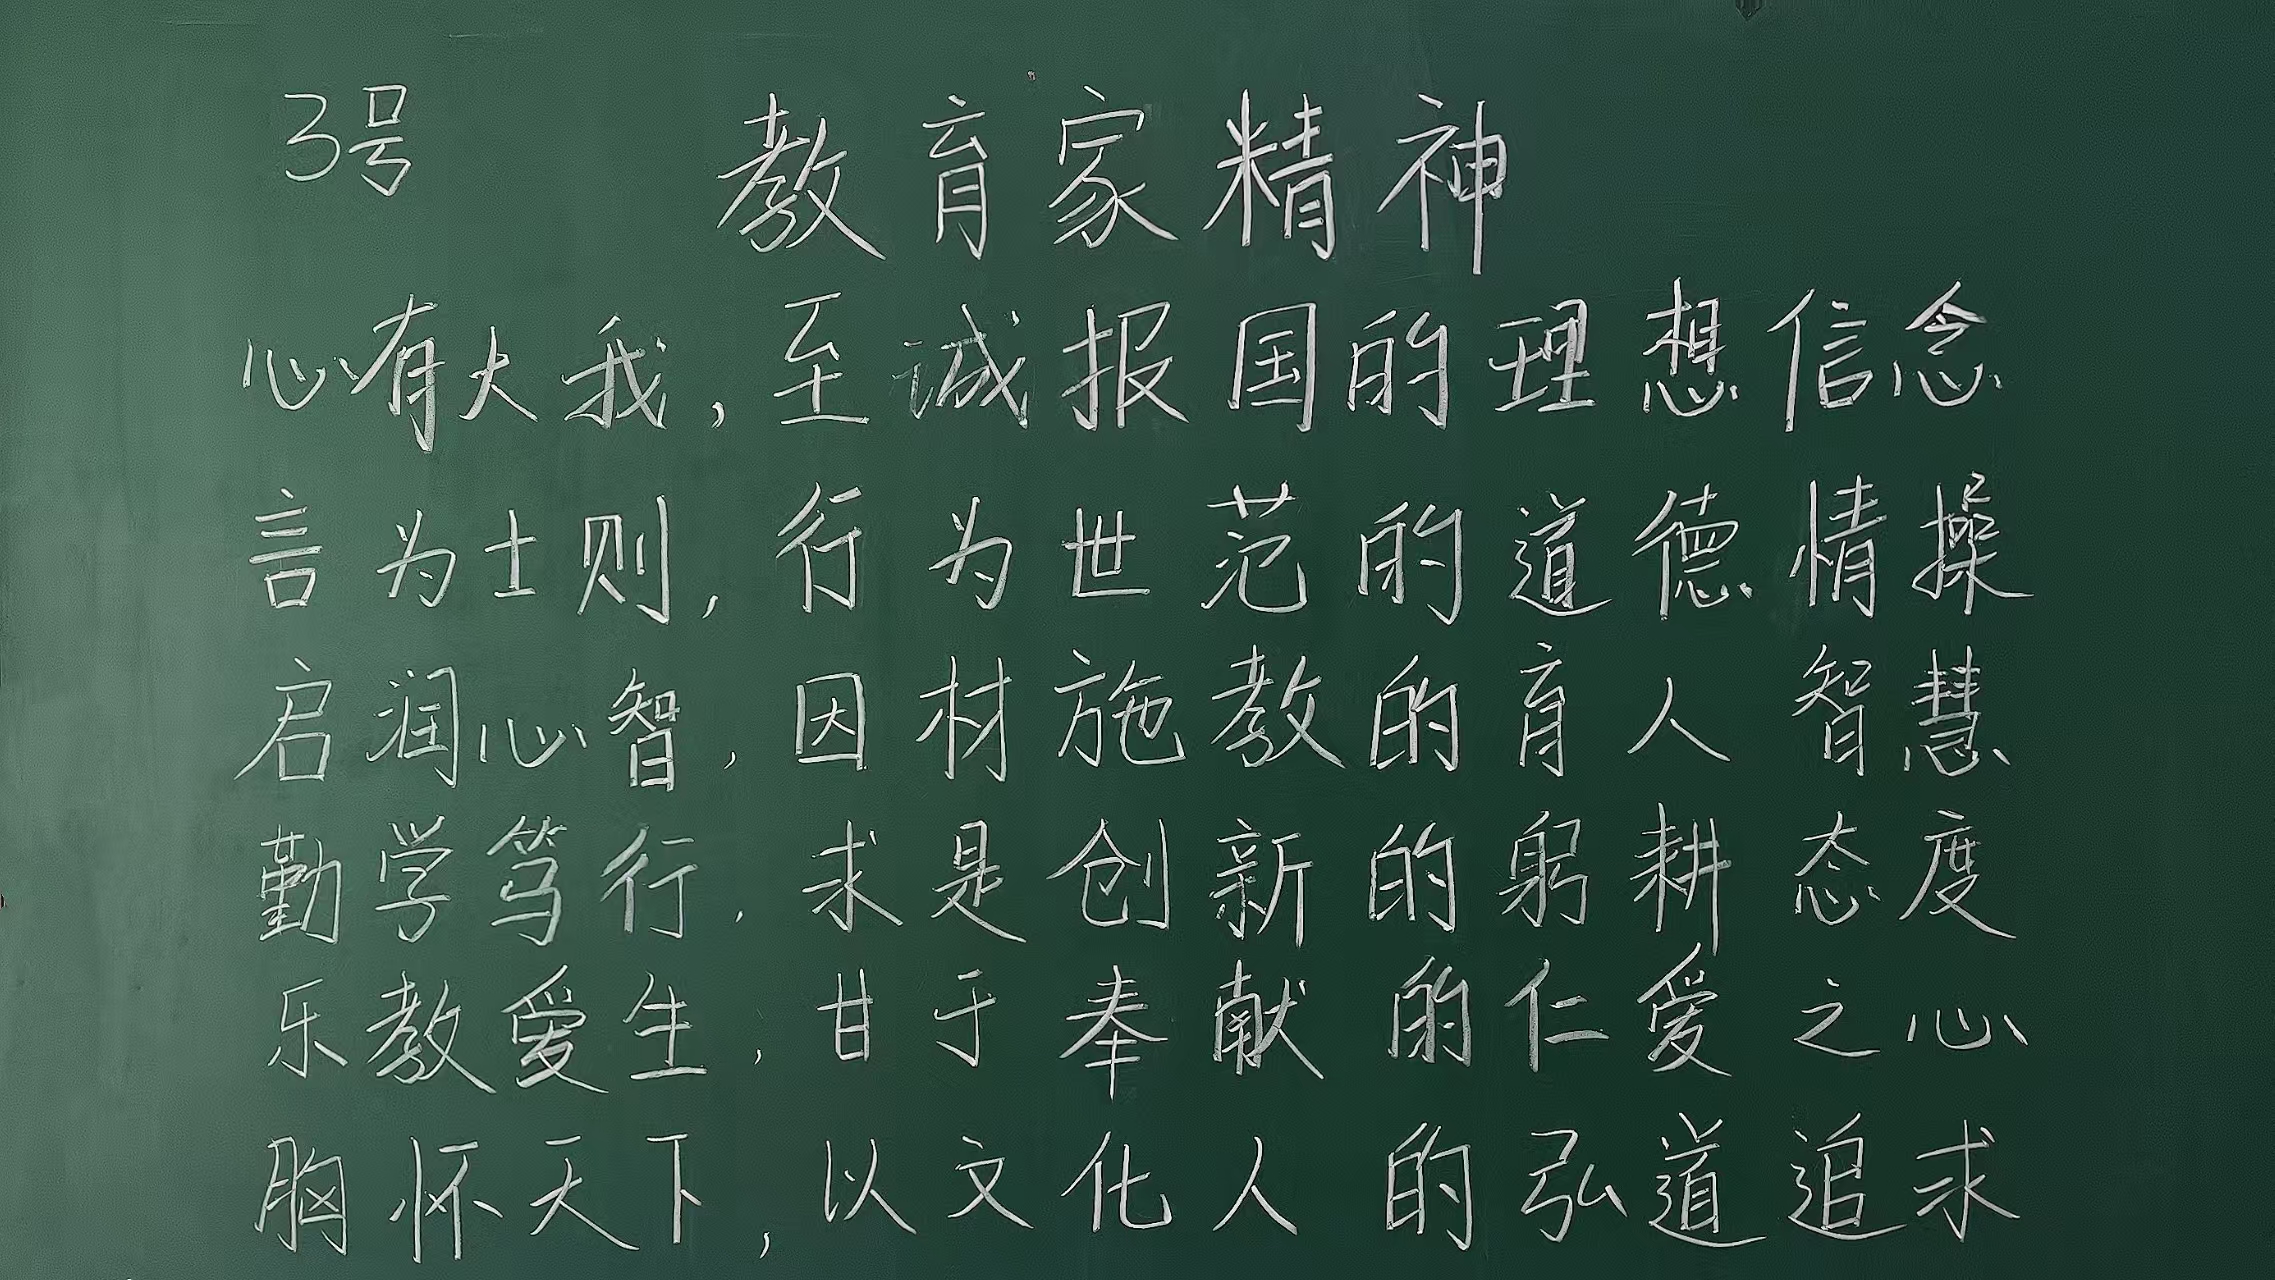 3号 教育家精神
心有大我，至诚报国的理想信念
言为士则，行为世范的道德情操
启润心智，因材施教的育人智慧
勤学笃行，求是创新的躬耕态度
乐教爱生，甘于奉献的仁爱之心
胸怀天下，以文化人的弘道追求